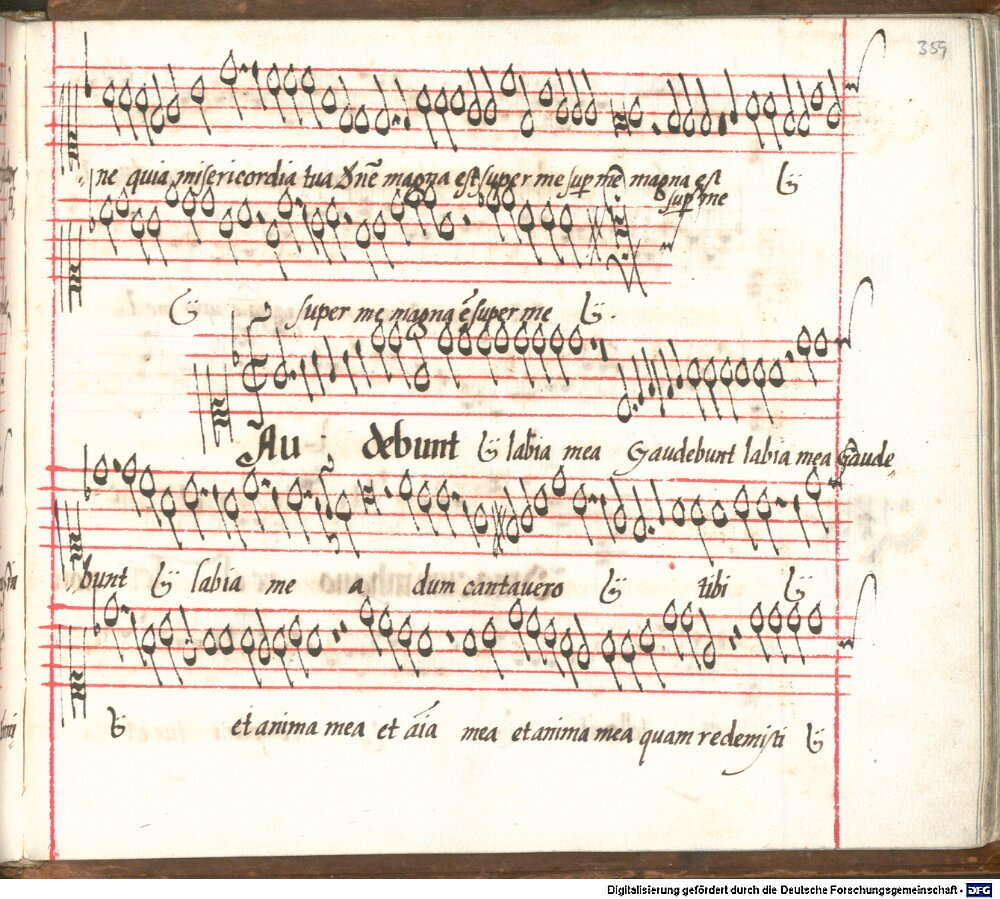 359
ne quia misericordia tua Dñe magna est super me sup me magna est
sup me
super me magna ē super me
Gau debunt labia mea Gaudebunt labia mea Gaude
bunt labia me a dum cantavero tibi
et anima mea et aīa mea et anima mea quam redemisti
Digitalisierung gefördert durch die Deutsche Forschungsgemeinschaft - DFG